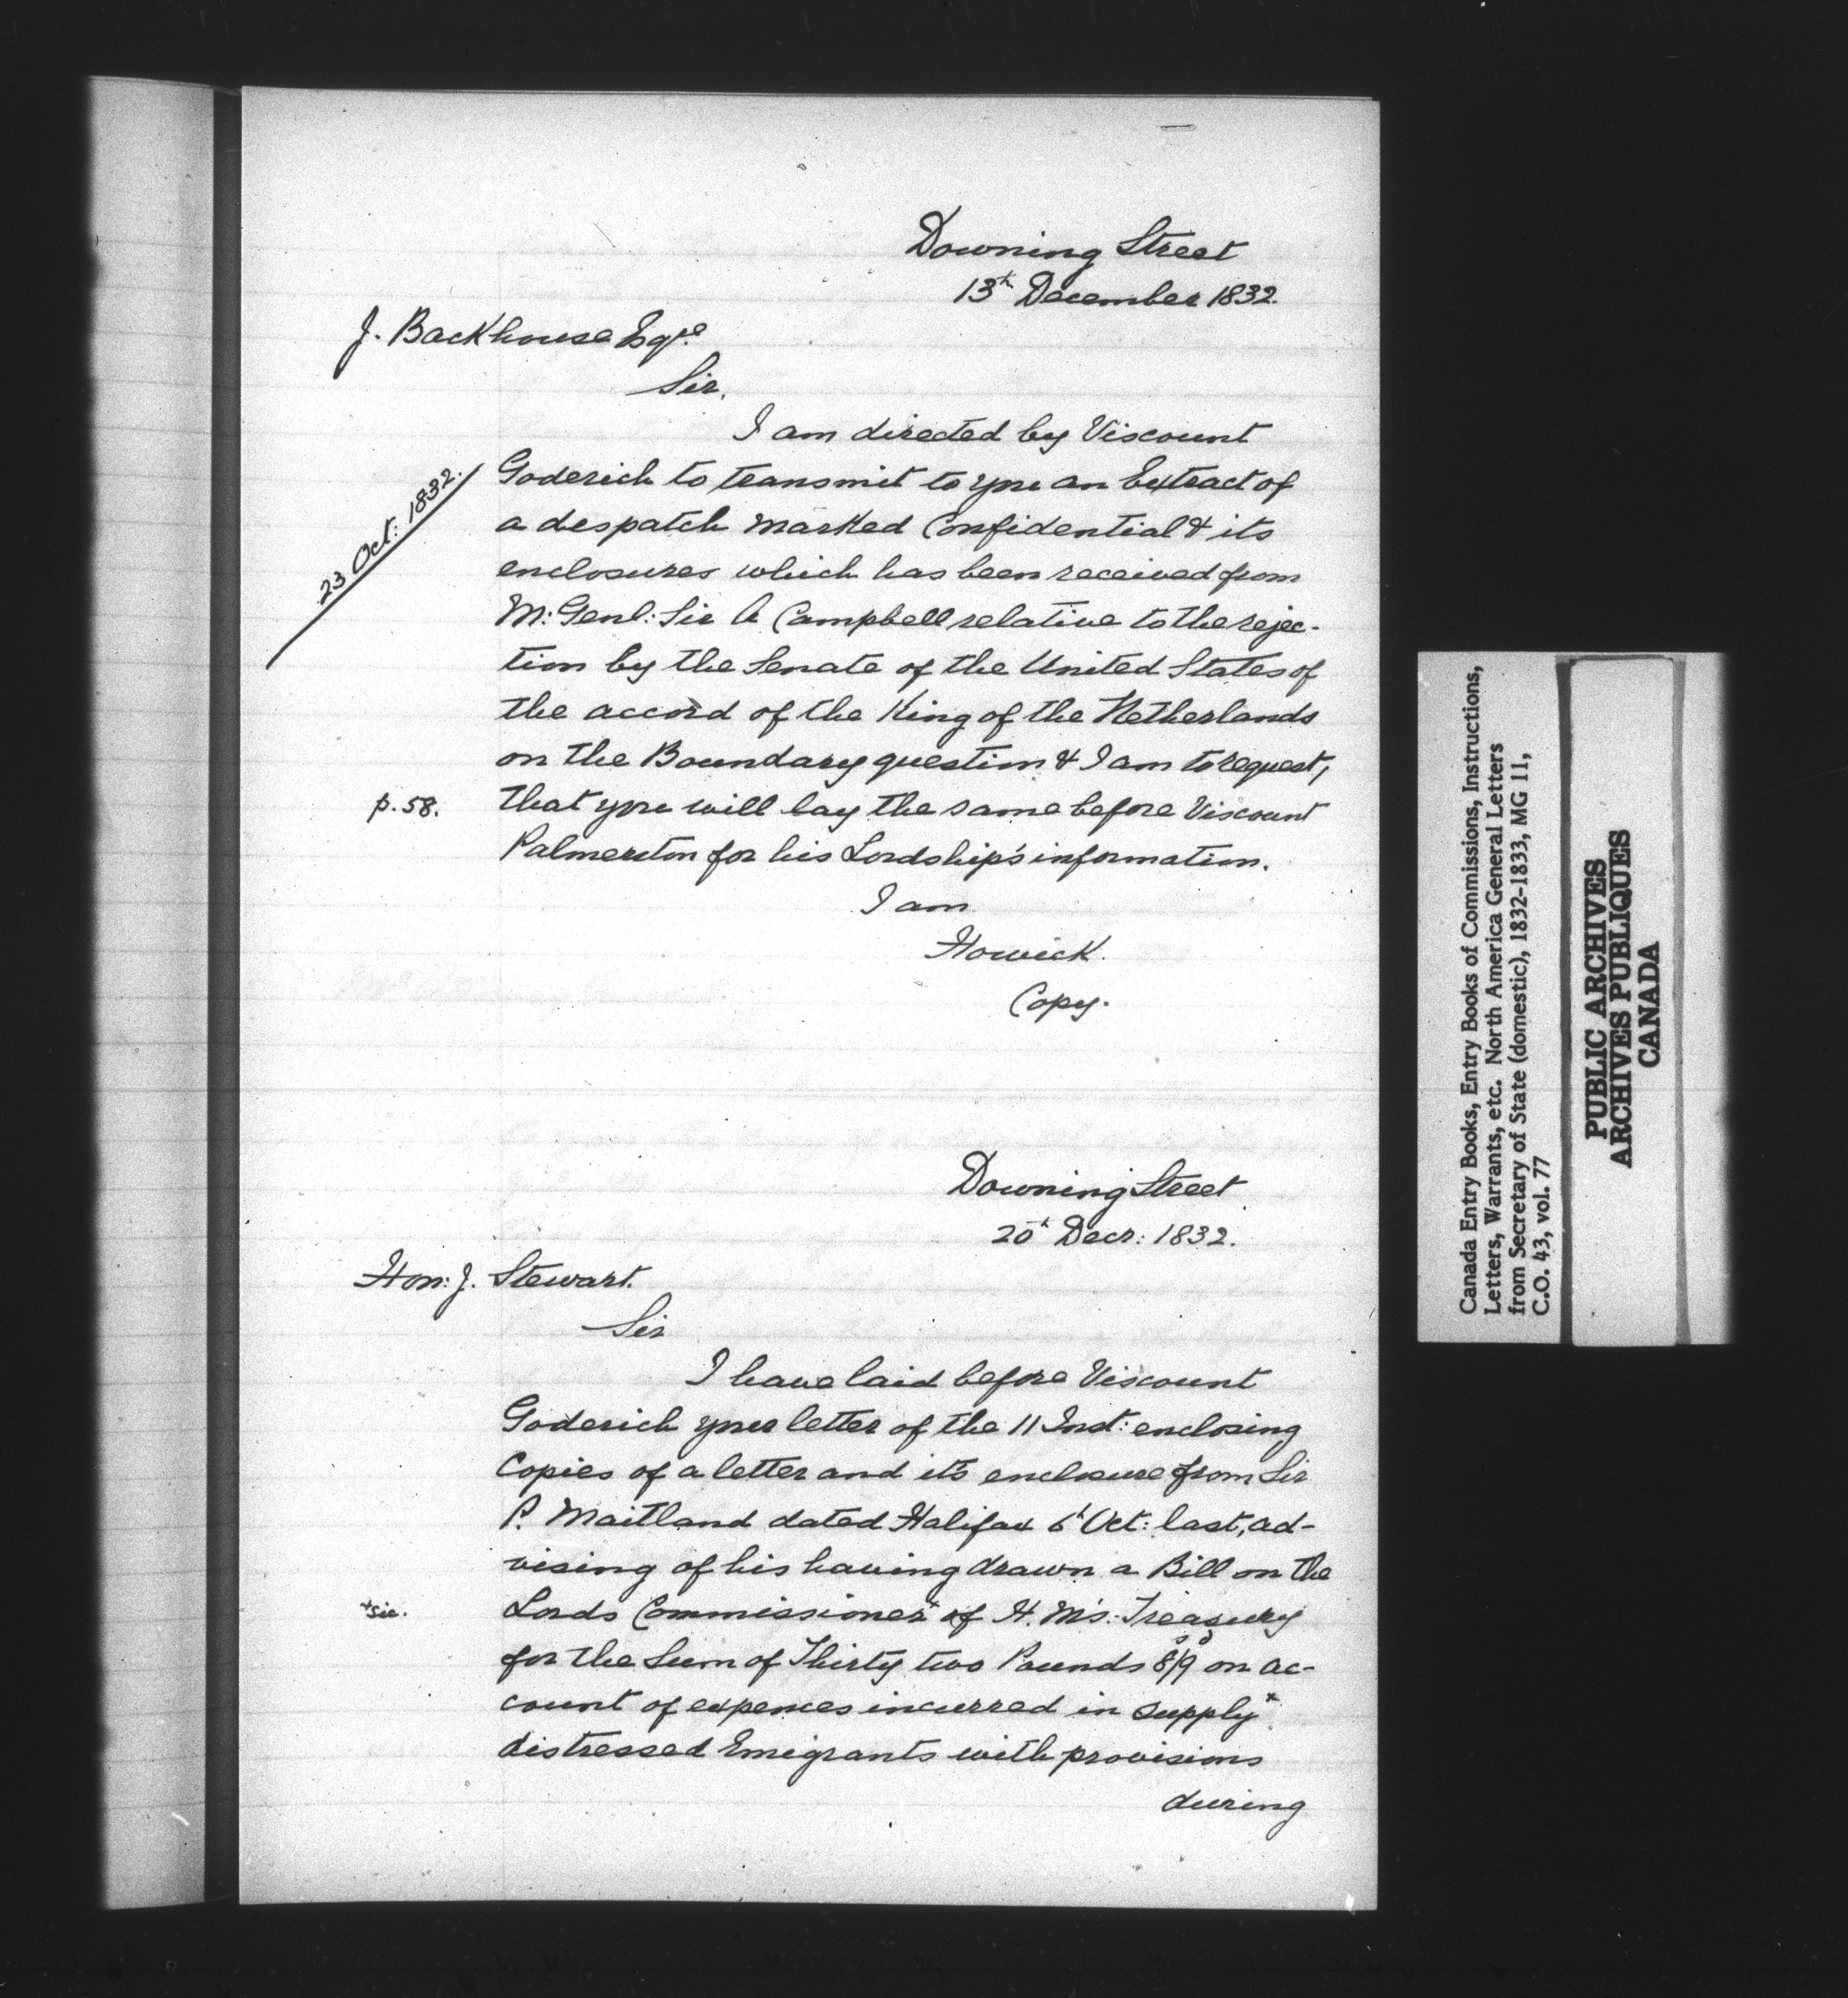 Downing Street
13th December 1832.
J. Backhouse Esqre
Sir,
I am directed by Viscount
23 Oct: 1832.
Goderich to transmit to you an Extract of
a despatch marked Confidential & its
enclosures which has been received from
M: Genl: Sir A Campbell relative to the rejec-
tion by the Senate of the United States of
the accord of the King of the Netherlands
on the Boundary question & I am to request,
p. 58.
that you will lay the same before Viscount
Palmerston for his Lordship's information.
I am
Howick.
Copy.
Downing Street
20th Decr: 1832.
Hon: J. Stewart.
Sir
I have laid before Viscount
Goderich your letter of the 11 Inst: enclosing
Copies of a letter and its enclosure from Sir
P. Maitland dated Halifax 6th Oct: last, ad-
vising of his having drawn a Bill on the
x sic.
Lords Commissioner x of H. M's: Treasury
for the Sum of Thirty two Pounds 8s/9d on ac-
count of expences incurred in supply x
distressed Emigrants with provisions
during
Canada Entry Books, Entry Books of Commissions, Instructions,
Letters, Warrants, etc. North America General Letters
from Secretary of State (domestic), 1832-1833, MG 11,
C.O. 43, vol. 77
PUBLIC ARCHIVES
ARCHIVES PUBLIQUES
CANADA